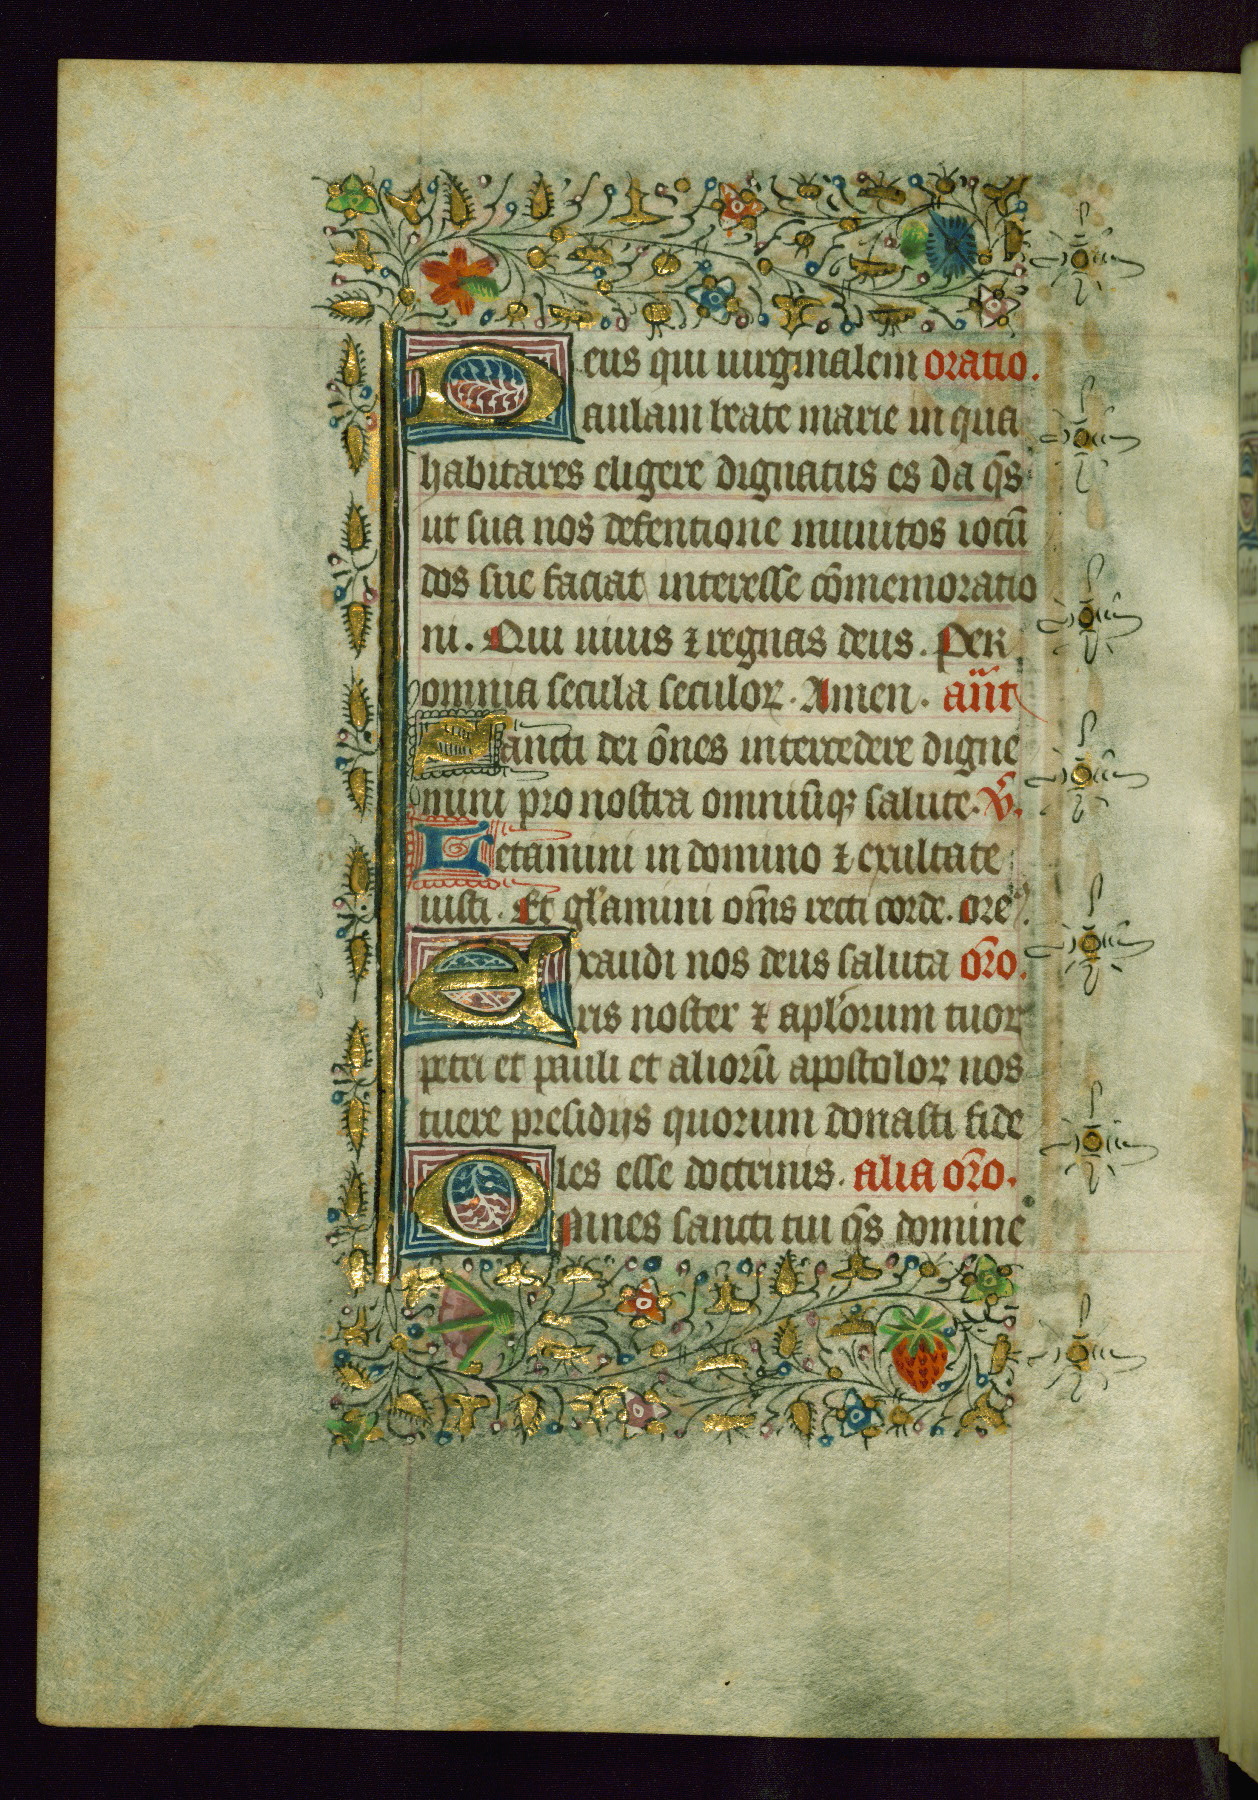 Deus qui uirginalem oratio.
aulam beate marie in qua
habitares eligere dignatus es da q̄s
ut sua nos defentione munitos iocū
dos sue faciat interesse cōmemoratio
ni. Qui uiuis ⁊ regnas deus. Per
omnia secula seculoꝝ. Amen. añt
Sancti dei ōnes intercedere digne
mini pro nostra omniūqꝫ salute. v̄.
Letamini in domino ⁊ exultate
iusti. Et gl̄amini om̄s recti corde. ore᷒.
Exaudi nos deus saluta or̄o.
ris noster ⁊ apl̄orum tuoꝝ
petri et pauli et aliorū apostoloꝝ nos
tuere presidijs quorum donasti fide
les esse doctrinis. alia or̄o.
Omnes sancti tui q̄s domine